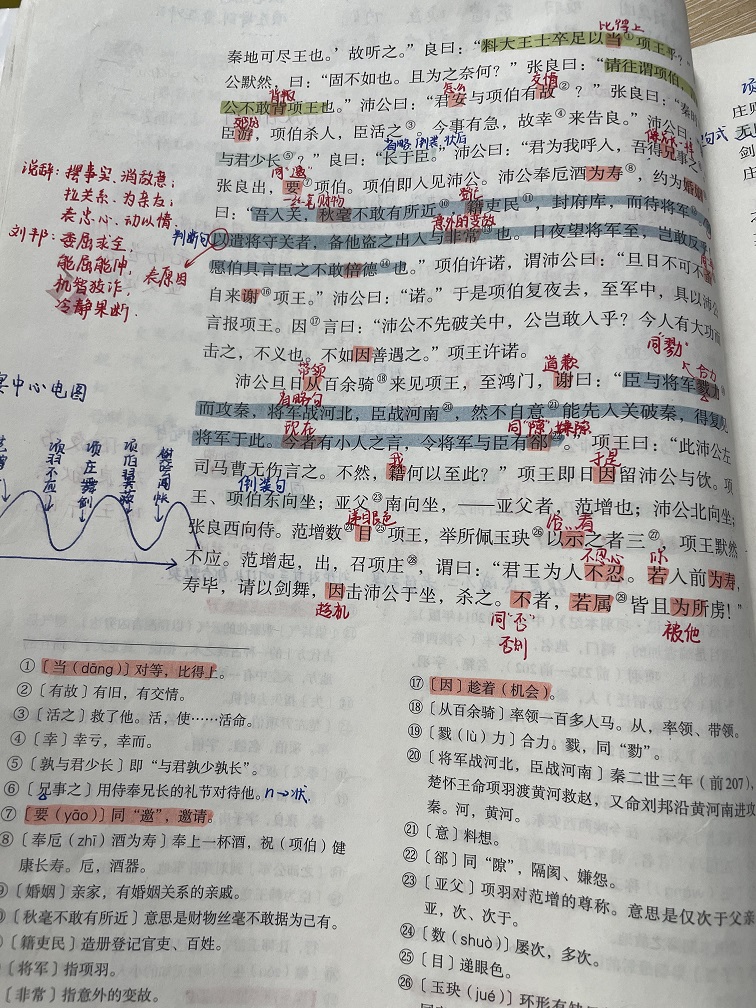 比得上
秦地可尽王也。’故听之。”良曰：“料大王士卒足以当①项王乎？”
公默然，曰：“固不如也。且为之奈何？”张良曰：“请往谓项伯，
背叛
怎么
交情
公不敢背项王也。”沛公曰：“君安与项伯有故②？”张良曰：“秦时
臣游，项伯杀人，臣活之③。今事有急，故幸④来告良。”沛公曰：
省略 倒装 状后
与君少长⑤？”良曰：“长于臣。”沛公曰：“君为我呼人，吾得兄事之
同“邀”
张良出，要⑦项伯。项伯即入见沛公。沛公奉卮酒为寿⑧，约为婚姻
一丝毫财物
登记
曰：“吾入关，秋毫不敢有所近⑩，籍吏民⑪，封府库，而待将军
意外的变故
以遣将守关者，备他盗之出入与非常⑬也。日夜望将军至，岂敢反乎
愿伯具言臣之不敢倍德⑭也。”项伯许诺，谓沛公曰：“旦日不可不
自来谢⑯项王。”沛公曰：“诺。”于是项伯复夜去，至军中，具以沛公
言报项王。因⑰言曰：“沛公不先破关中，公岂敢入乎？今人有大功而
同“勠”
击之，不义也。不如因善遇之。”项王许诺。
合力
带领
道歉
沛公旦日从百余骑⑱来见项王，至鸿门，谢曰：“臣与将军戮力
省略句
而攻秦，将军战河北，臣战河南⑳，然不自意㉑能先入关破秦，得复见
现在
同“隙”，嫌隙
将军于此。今者有小人之言，令将军与臣有郤㉒。”项王曰：“此沛公左
我
于是
司马曹无伤言之。不然，籍何以至此？”项王即日因留沛公与饮。项
倒装句
王、项伯东向坐；亚父㉓南向坐，——亚父者，范增也；沛公北向坐；
递眼色
张良西向侍。范增数㉔目㉕项王，举所佩玉玦㉖以示之者三㉗，项王默然
不忍心
你
不应。范增起，出，召项庄㉘，谓曰：“君王为人不忍。若入前为寿，
寿毕，请以剑舞，因击沛公于坐，杀之。不者，若属㉙皆且为所虏！”
趁机
同“否”
否则
被他
说辞：摆事实、消敌意；
拉关系、为亲友；
表忠心、动以情。
刘邦：委屈求全；
能屈能伸
机智狡诈，
冷静果断.
判断句
表原因
中心电图
项羽不应
项庄舞剑
项伯翼蔽
①〔当（dāng）〕对等，比得上。
②〔有故〕有旧，有交情。
③〔活之〕救了他。活，使……活命。
④〔幸〕幸亏，幸而。
⑤〔孰与君少长〕即“与君孰少孰长”。
⑥〔兄事之〕用侍奉兄长的礼节对待他。n→状.
⑦〔要（yāo）〕同“邀”，邀请。
⑧〔奉卮（zhī）酒为寿〕奉上一杯酒，祝（项伯）健
康长寿。卮，酒器。
〔婚姻〕亲家，有婚姻关系的亲戚。
〔秋毫不敢有所近〕意思是财物丝毫不敢据为己有。
〔籍吏民〕造册登记官吏、百姓。
〔将军〕指项羽。
〔非常〕指意外的变故。
⑰〔因〕趁着（机会）。
⑱〔从百余骑〕率领一百多人马。从，率领、带领。
⑲〔戮（lù）力〕合力。戮，同“勠”。
⑳〔将军战河北，臣战河南〕秦二世三年（前207），
楚怀王命项羽渡黄河救赵，又命刘邦沿黄河南进攻
秦。河，黄河。
㉑〔意〕料想。
㉒〔郤〕同“隙”，隔阂、嫌怨。
㉓〔亚父〕项羽对范增的尊称。意思是仅次于父亲
亚，次、次于。
㉔〔数（shuò）〕屡次，多次。
㉕〔目〕递眼色。
㉖〔玉玦（jué）〕环形